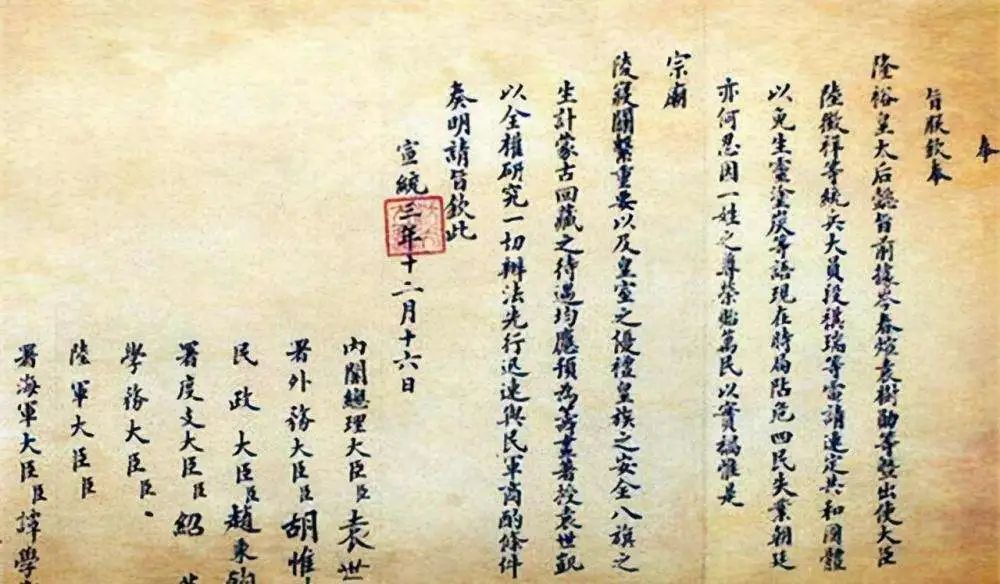 奉
旨朕欽奉
隆裕皇太后懿旨前據岑春煊袁樹勛等暨出使大臣
陸徵祥等統兵大員段祺瑞等電請速定共和國體
以免生靈塗炭等語現在時局阽危四民失業朝廷
亦何忍因一姓之尊榮貽萬民以實禍惟是
宗廟
陵寢關繫重要以及皇室之優禮皇族之安全八旗之
生計蒙古回藏之待遇均應預為籌畫著授袁世凱
以全權研究一切辦法先行迅速與民軍商酌條件
奏明請旨欽此
宣統三年十二月十六日
內閣總理大臣臣袁世
署外務大臣臣胡惟
民政大臣臣趙秉鈞
署度支大臣臣紹
學務大臣臣、
陸軍大臣臣
署海軍大臣臣譚學